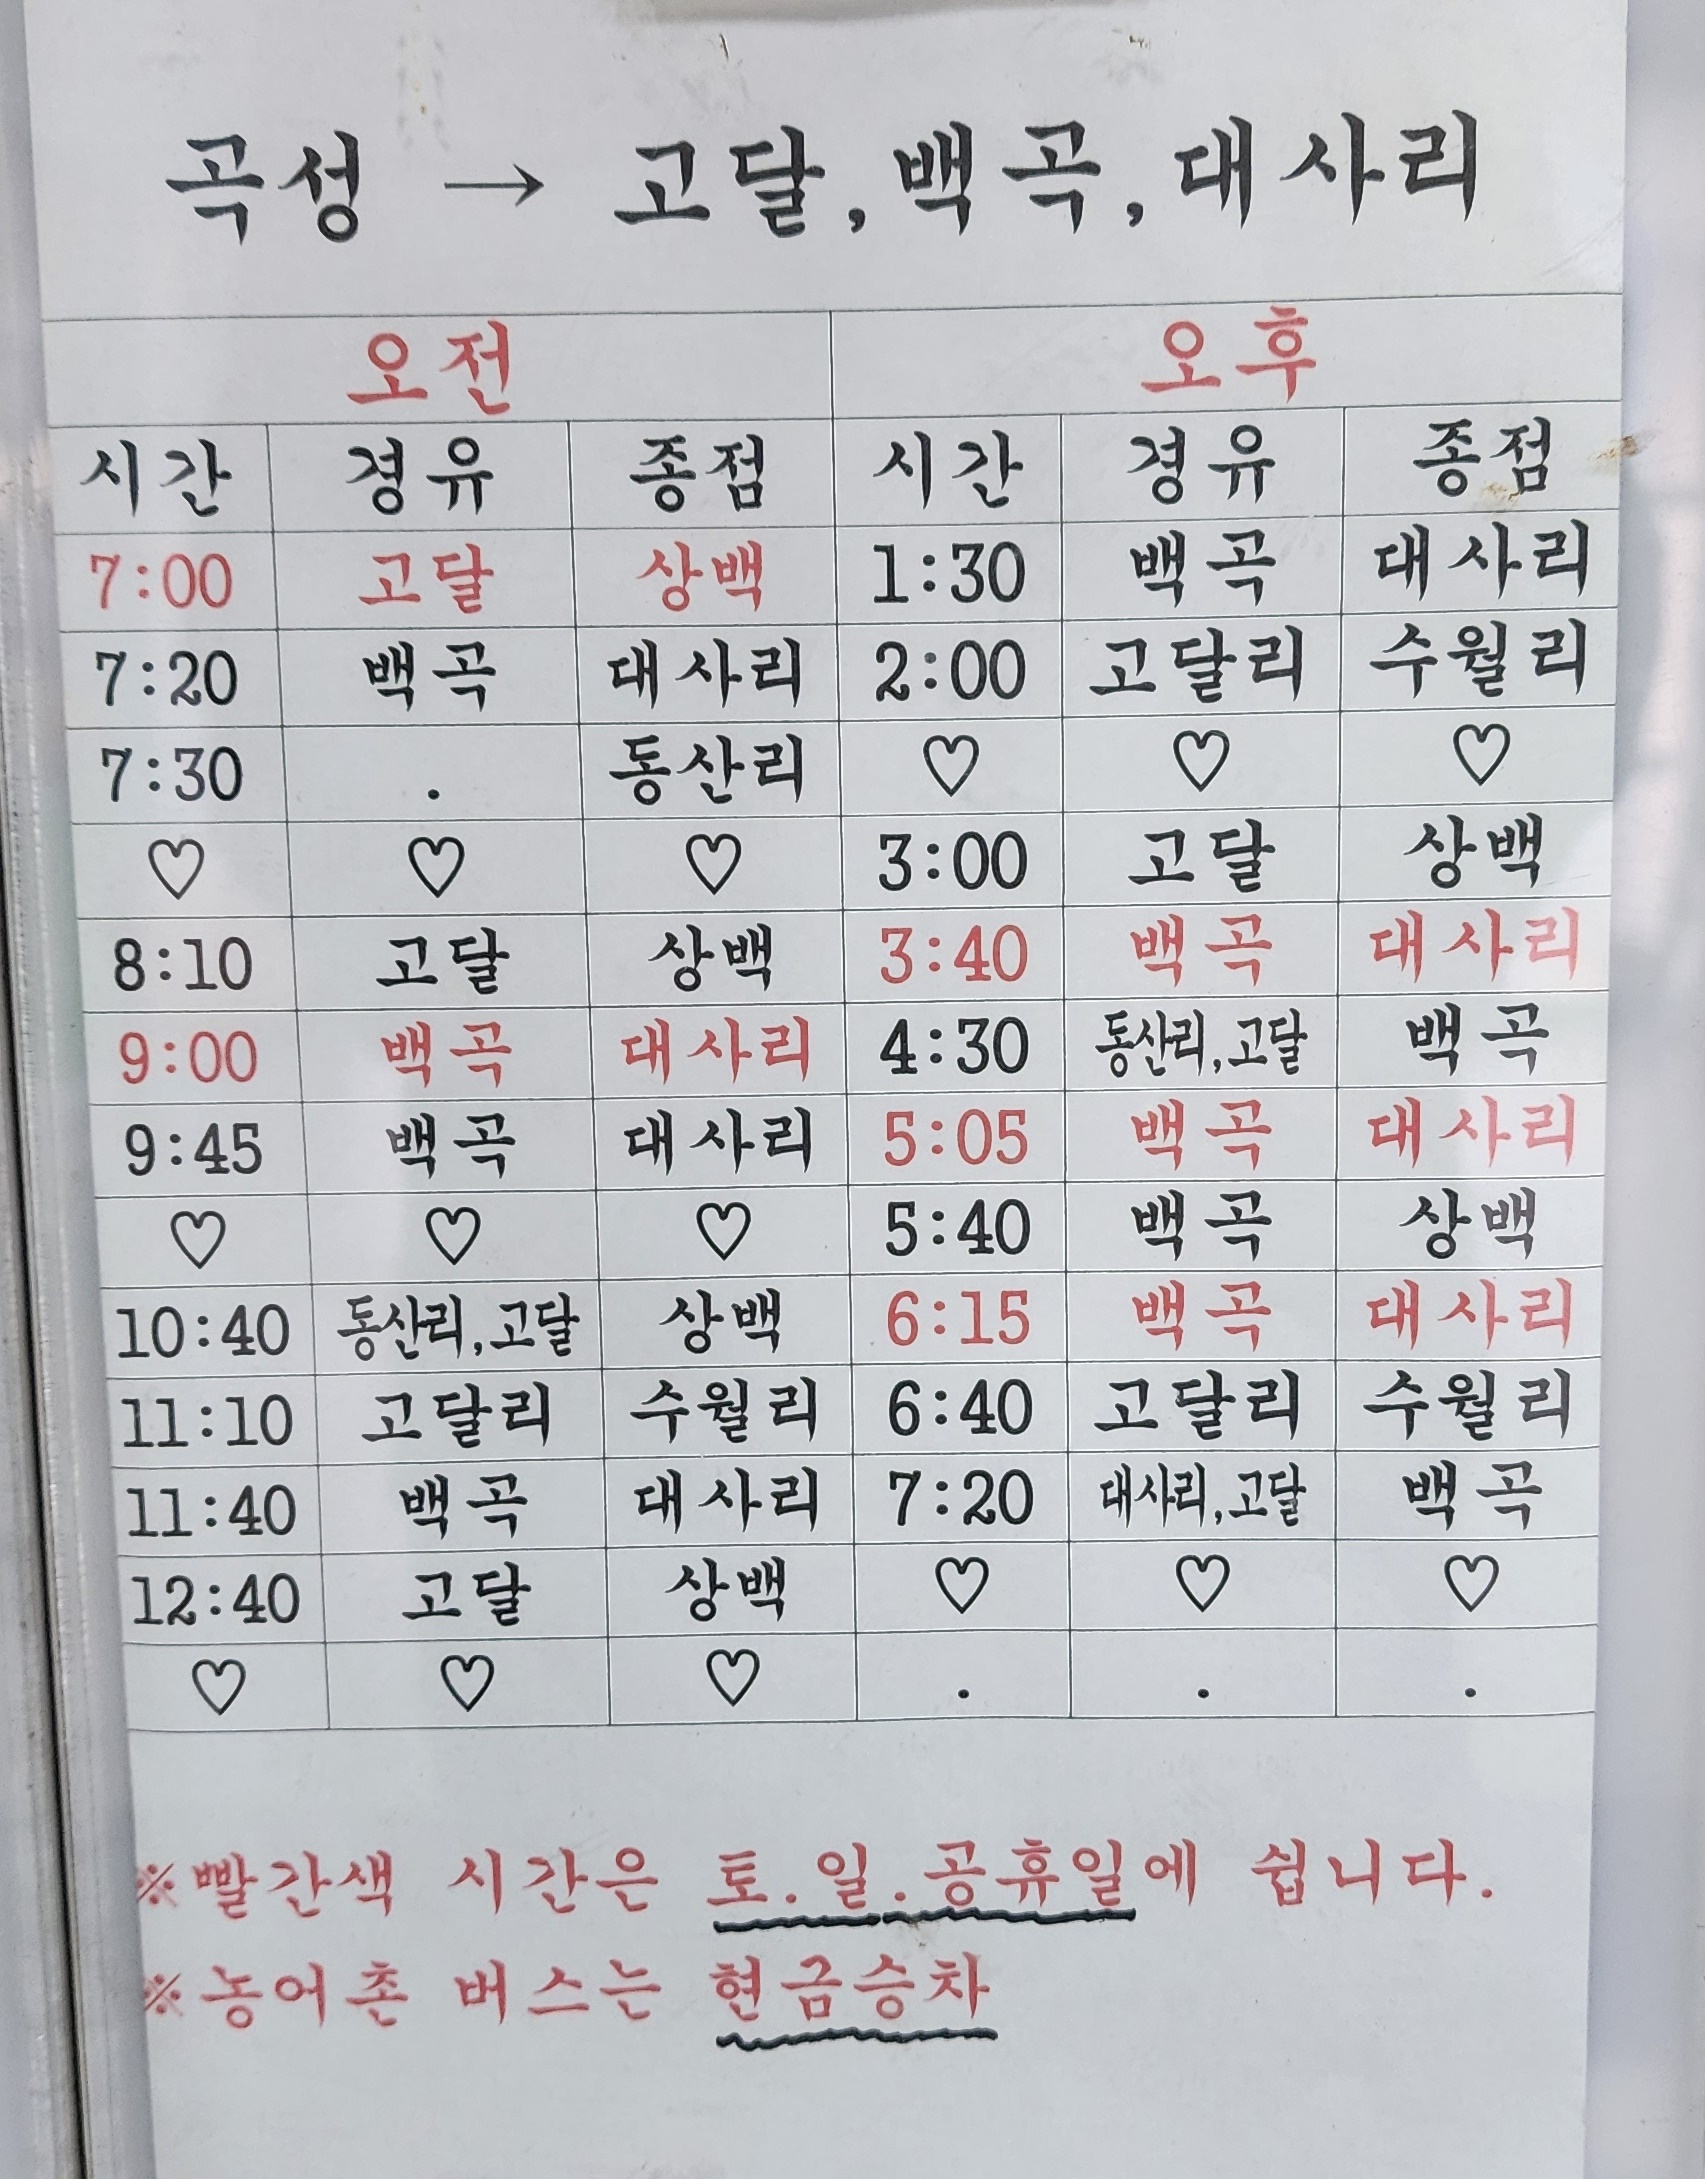 곡성 → 고달, 백곡, 대사리
오전 오후
시간 경유 종점 시간 경유 종점
7:00 고달 상백 1:30 백곡 대사리
7:20 백곡 대사리 2:00 고달리 수월리
7:30 . 동산리 ♡ ♡ ♡
♡ ♡ ♡ 3:00 고달 상백
8:10 고달 상백 3:40 백곡 대사리
9:00 백곡 대사리 4:30 동산리,고달 백곡
9:45 백곡 대사리 5:05 백곡 대사리
♡ ♡ ♡ 5:40 백곡 상백
10:40 동산리,고달 상백 6:15 백곡 대사리
11:10 고달리 수월리 6:40 고달리 수월리
11:40 백곡 대사리 7:20 대사리,고달 백곡
12:40 고달 상백 ♡ ♡ ♡
♡ ♡ ♡ . . .
※빨간색 시간은 토.일.공휴일에 쉽니다.
※농어촌 버스는 현금승차